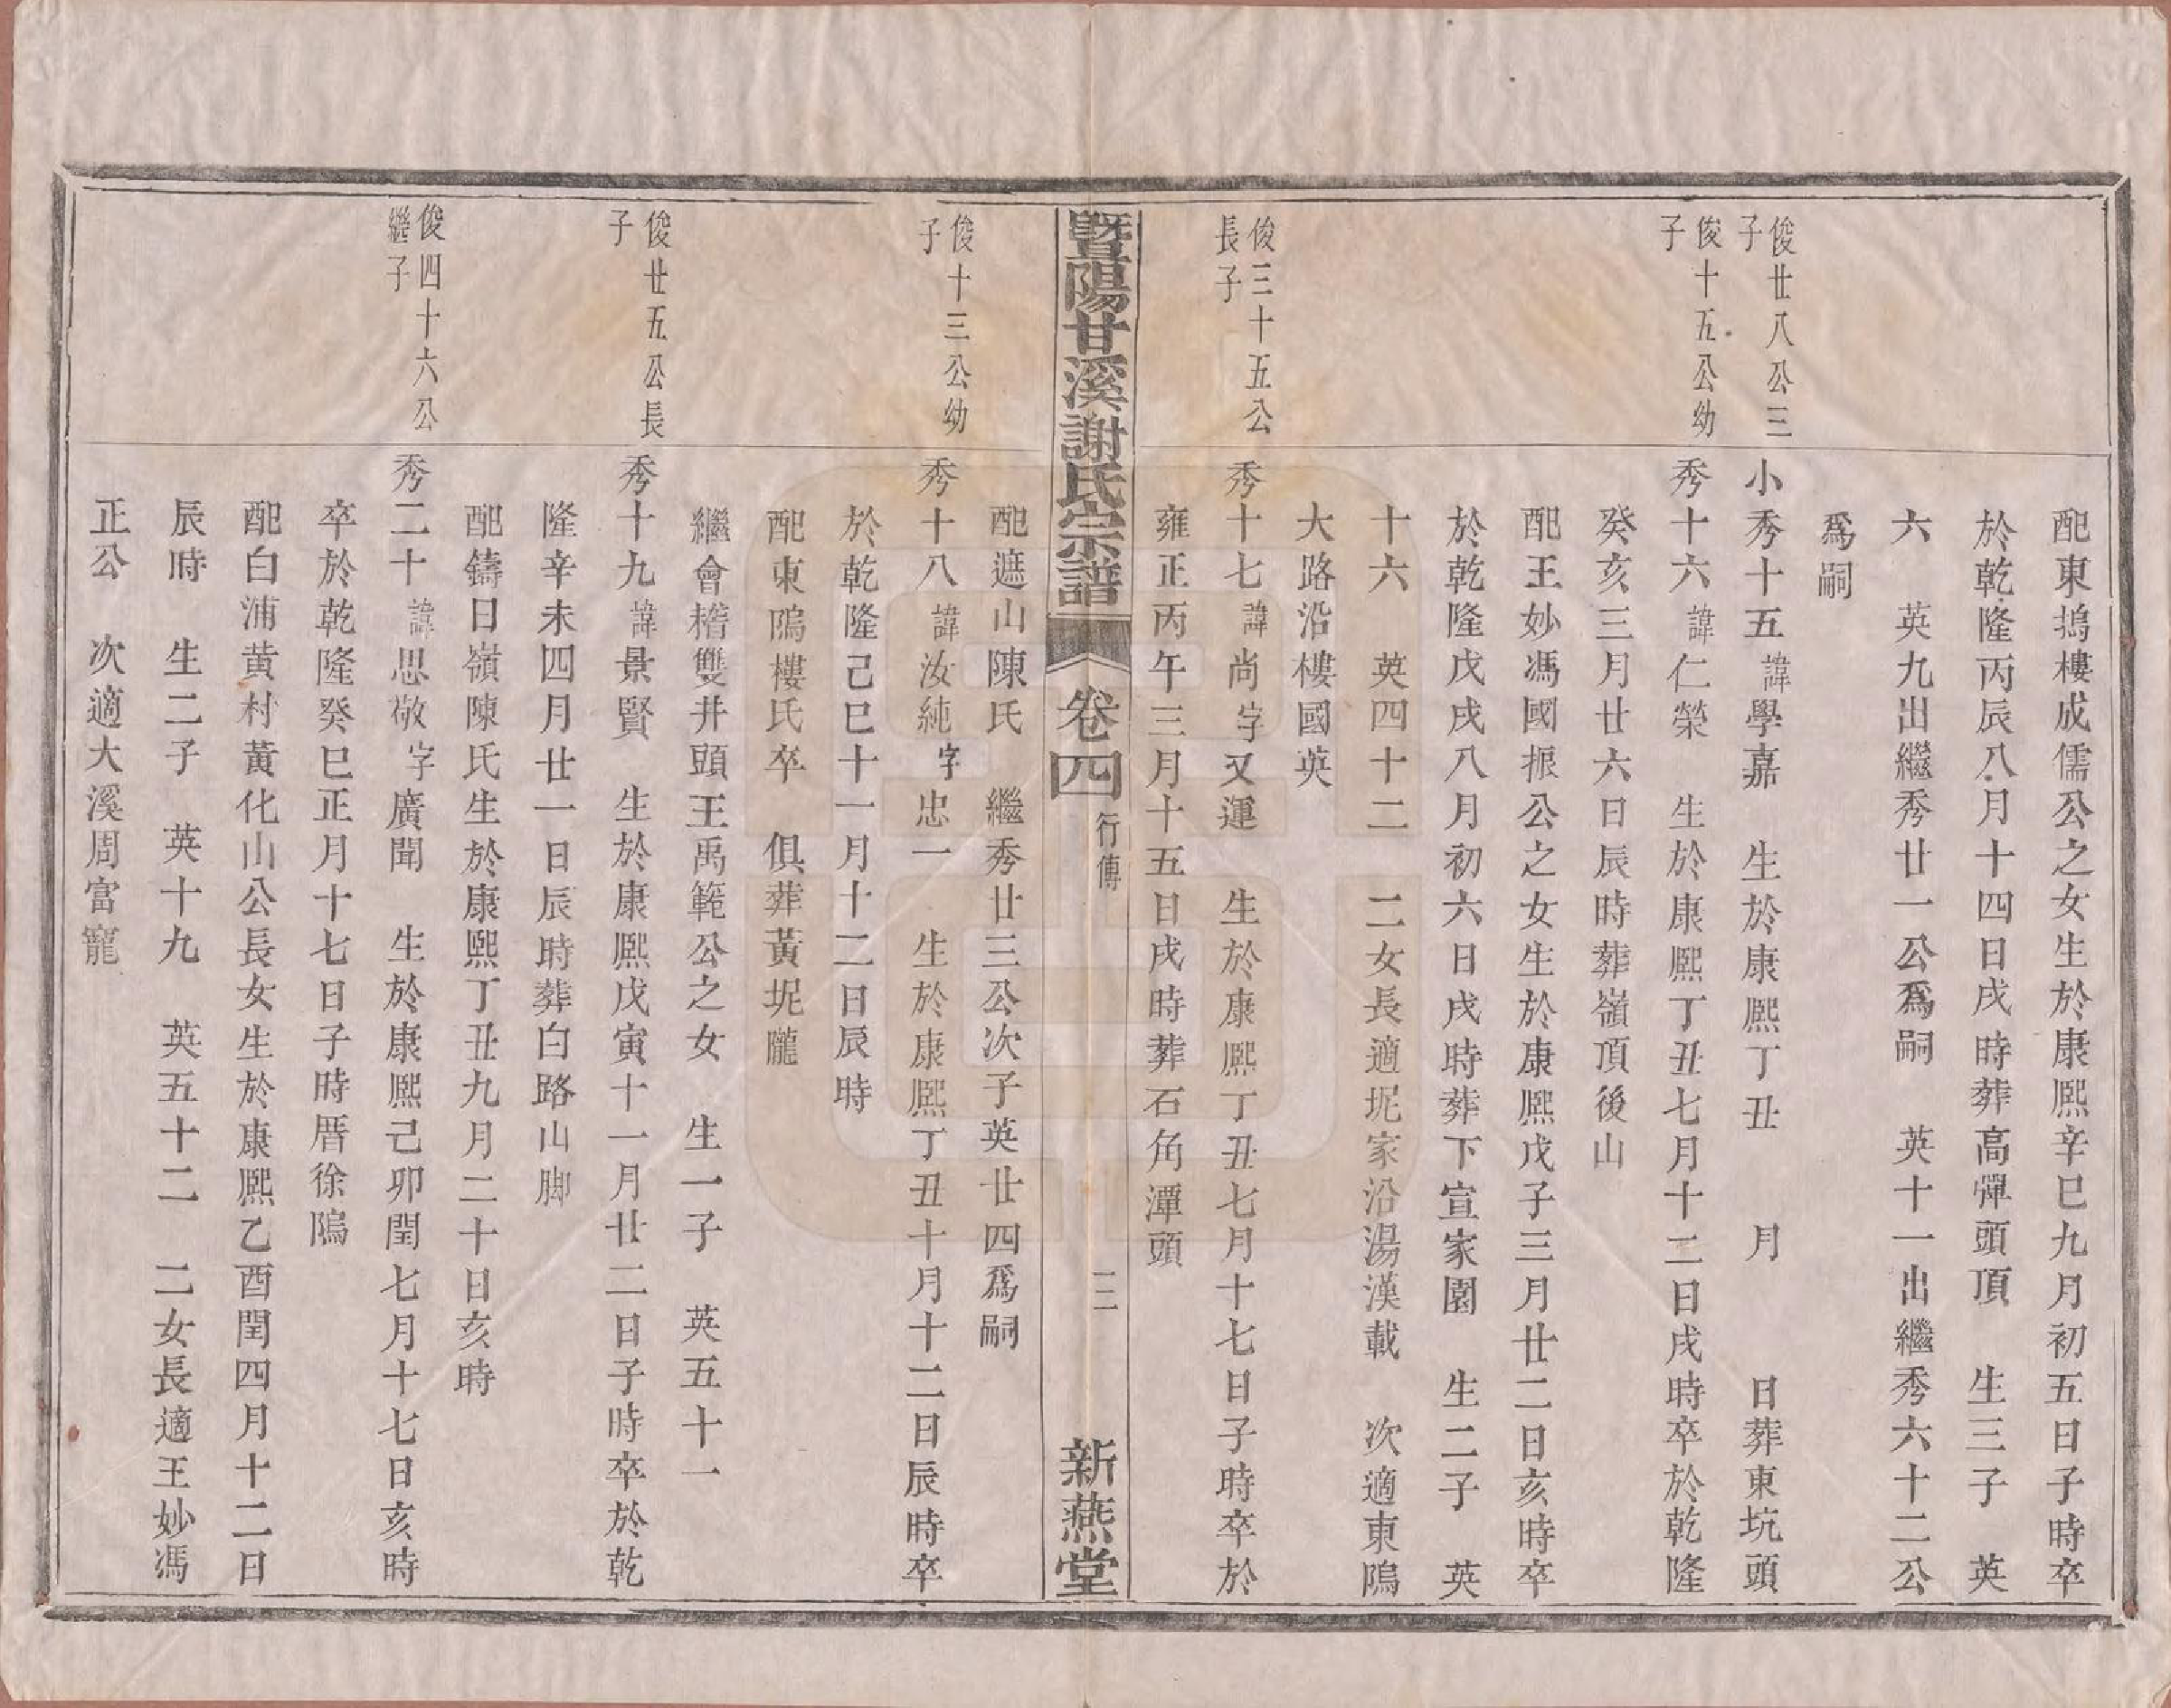 配東塢樓成儒公之女生於康熙辛巳九月初五日子時卒
於乾隆丙辰八月十四日戌時葬高憚頭頂 生三子 英
六 英九出繼秀廿一公爲嗣 英十一出繼秀六十二公
爲嗣
俊廿八公三
子
小秀十五諱學嘉 生於康熙丁丑 月 日葬東坑頭
俊十五公幼
子
秀十六諱仁榮 生於康熙丁丑七月十二日戌時卒於乾隆
癸亥三月廿六日辰時葬嶺頂後山
配王妙馮國振公之女生於康熙戊子三月廿二日亥時卒
於乾隆戊戌八月初六日戌時葬下宣家園 生二子 英
十六 英四十二 二女長適坭家沿湯漢載 次適東隖
大路沿樓國英
俊三十五公
長子
秀十七諱尚字又運 生於康熙丁丑七月十七日子時卒於
雍正丙午三月十五日戌時葬石角潭頭
暨陽甘溪謝氏宗譜 卷四 行傳 三 新燕堂
配遮山陳氏 繼秀廿三公次子英廿四爲嗣
俊十三公幼
子
秀十八諱汝純字忠一 生於康熙丁丑十月十二日辰時卒
於乾隆己巳十一月十二日辰時
配東隖樓氏卒 俱葬黃坭隴
繼會稽雙井頭王禹範公之女 生一子 英五十一
俊廿五公長
子
秀十九諱景賢 生於康熙戊寅十一月廿二日子時卒於乾
隆辛未四月廿一日辰時葬白路山脚
配鑄日嶺陳氏生於康熙丁丑九月二十日亥時
俊四十六公
繼子
秀二十諱思敬字廣聞 生於康熙己卯閏七月十七日亥時
卒於乾隆癸巳正月十七日子時厝徐隖
配白浦黄村黃化山公長女生於康熙乙酉閏四月十二日
辰時 生二子 英十九 英五十二 二女長適王妙馮
正公 次適大溪周富寵